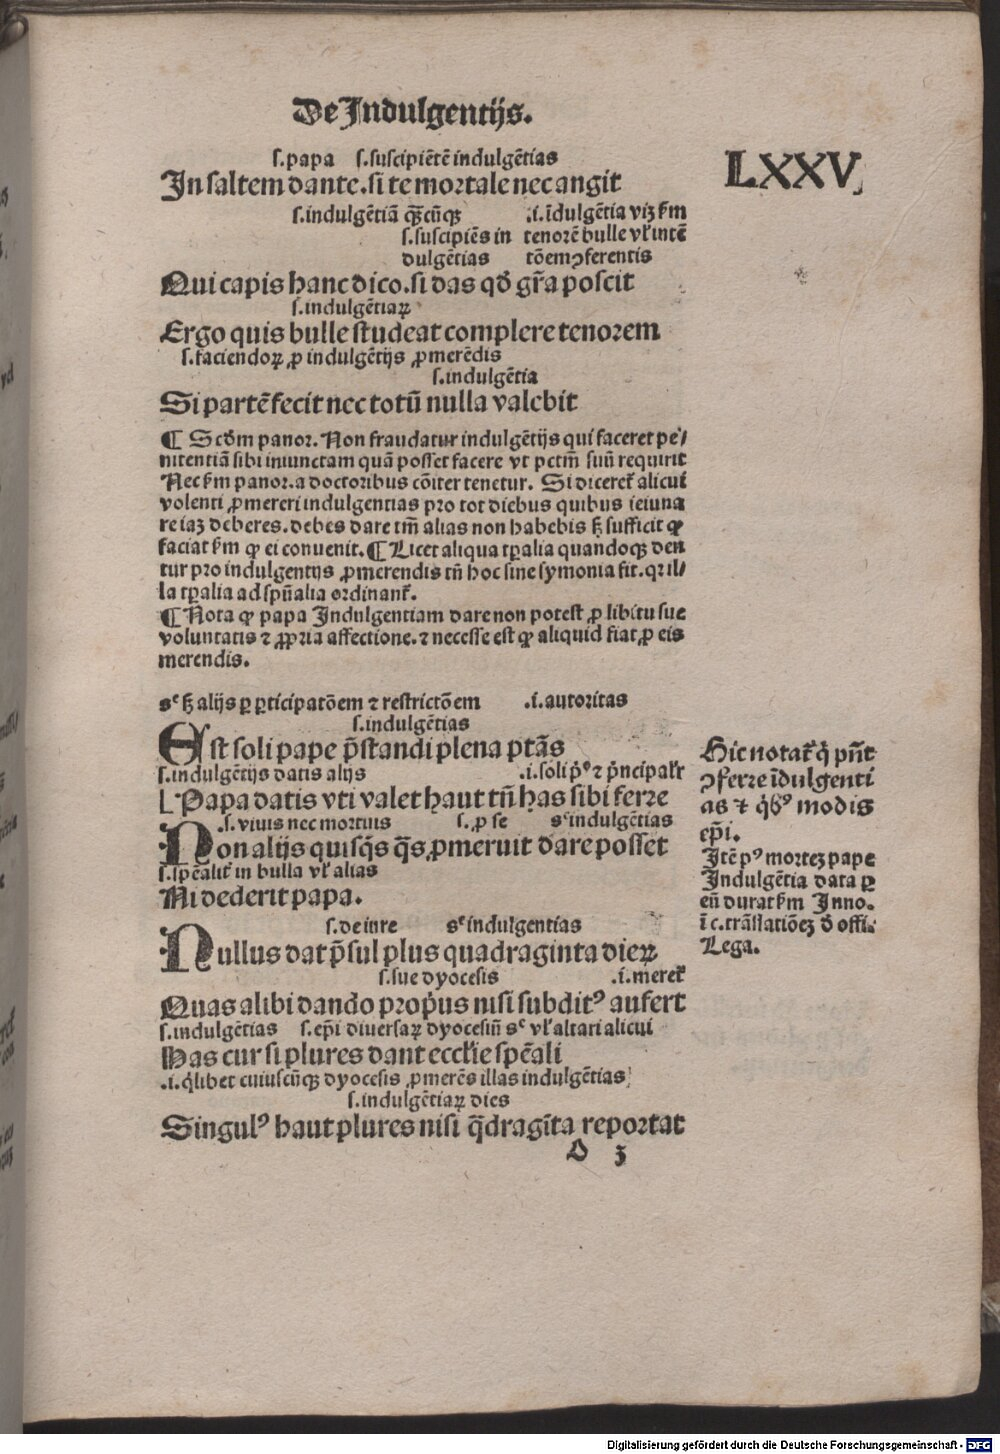 De Indulgentijs.
LXXV
s.papa s.suscipiētē indulgētias
In saltem dante.si te mortale nec angit
s.indulgētiā q̄cūqꝫ .i.īdulgētia viꝫ ẜm
s.suscipiēs in tenorē bulle vl' intē
dulgētias tōem ꝯferentis
Qui capis hanc dico.si das qd' gr̄a poscit
s.indulgētiaꝝ
Ergo quis bulle studeat complere tenorem
s.faciendoꝝ ꝓ indulgētijs ꝓmerēdis
s.indulgētia
Si partē fecit nec totū nulla valebit
¶ Scd'm panor. Non fraudatur indulgētijs qui faceret pe/
nitentiā sibi iniunctam quā posset facere vt pctm̄ suū requirit
Nec ẜm panor.a doctoribus cōiter tenetur. Si diceret' alicui
volenti ꝓmereri indulgentias pro tot diebus quibus ieiuna
re iaꝫ deberes.debes dare tm̄ alias non habebis sꝫ sufficit ꝙ
faciat ẜm ꝙ ei conuenit.¶ Licet aliqua tp̄alia quandoqꝫ den
tur pro indulgentijs ꝓmerendis tn̄ hoc sine symonia fit.qr il/
la tp̄alia ad spūalia ordinant'.
¶ Nota ꝙ papa Indulgentiam dare non potest ꝓ libitu sue
voluntatis ⁊ ꝓpria affectione.⁊ necesse est ꝙ aliquid fiat ꝓ eis
merendis.
sꝫ alijs ꝑ ꝑticipatōem ⁊ restrictōem .i.autoritas
s.indulgētias
Est soli pape p̄standi plena ptās
s.indulgētijs datis alijs .i.soli pͥ⁹ ⁊ pͥncipalr'
Papa datis vti valet haut tn̄ has sibi ferre
.s.viuis nec mortuis s.ꝓ se sͨ indulgētias
Non alijs quisqͥs qͣs ꝓmeruit dare posset
s.spēalit' in bulla vl' alias
Ni dederit papa.
s.de iure sͨ indulgentias
Nullus dat p̄sul plus quadraginta dieꝝ
s.sue dyocesis .i.meret'
Quas alibi dando propͥus nisi subdit⁹ aufert
s.indulgētias s.epī diuersaꝝ dyocesiū sͨ vl' altari alicui
Has cur si plures dant eccl'ie spēali
.i.qͥlibet cuiuscūqꝫ dyocesis ꝓmerēs illas indulgētias
s.indulgētiaꝝ dies
Singul⁹ haut plures nisi qͣdragīta reportat
Hic notat' qͥ pn̄t
ꝯferre īdulgenti
as ⁊ qͥb⁹ modis
epī.
Itē p⁹ morteꝫ pape
Indulgētia data ꝑ
eū durat ẜm Inno.
ī c.trāslatiōeꝫ d' offi.
Lega.